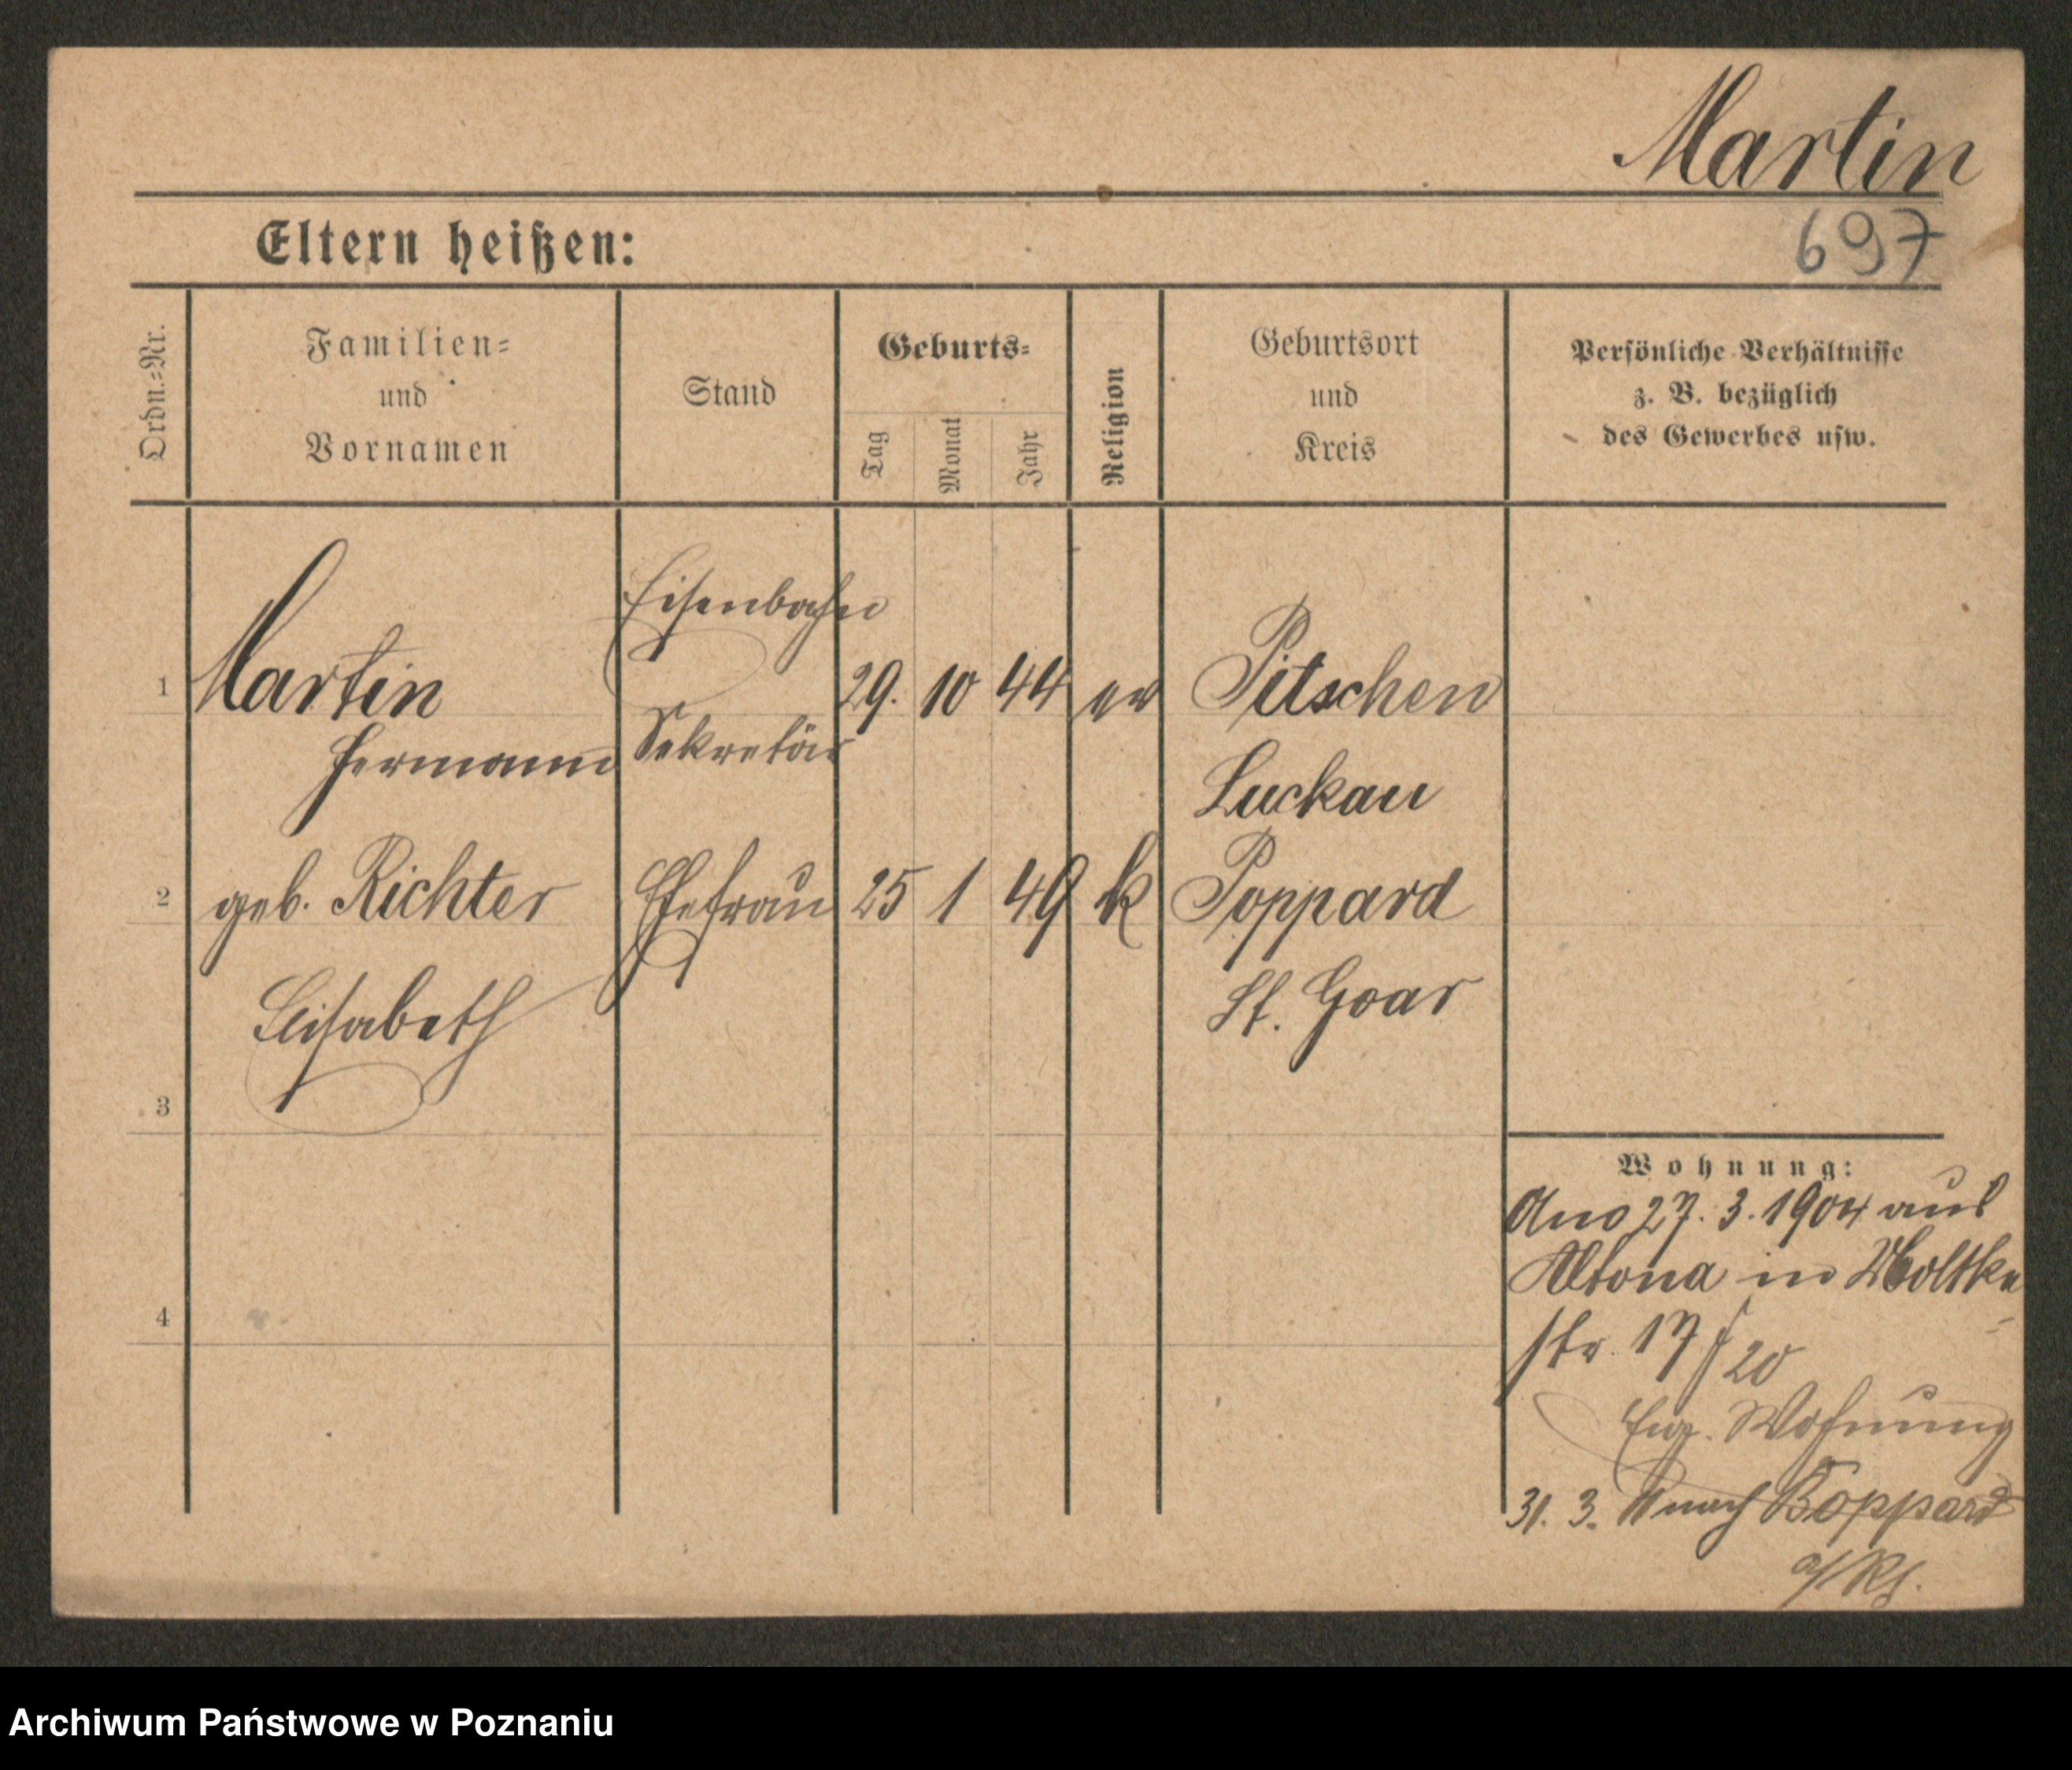 Martin
697
Eltern heißen:
Ordn.-Nr.
Familien-
und
Vornamen
Stand
Geburts-
Tag
Monat
Jahr
Religion
Geburtsort
und
Kreis
Persönliche Verhältnisse
z. B. bezüglich
des Gewerbes usw.
1 Martin Eisenbahn 29. 10 44 ev Pitschen
Hermann Sekretär Luckau
2 geb. Richter Ehefrau 25 1 49 k Poppard
Elisabeth St. Goar
3
4
Wohnung:
27. 3. 1904 aus
Altona in Moltke
str. 17/20
Wohnung
31. 3. 11 nach Boppard
a/Rh.
Archiwum Państwowe w Poznaniu